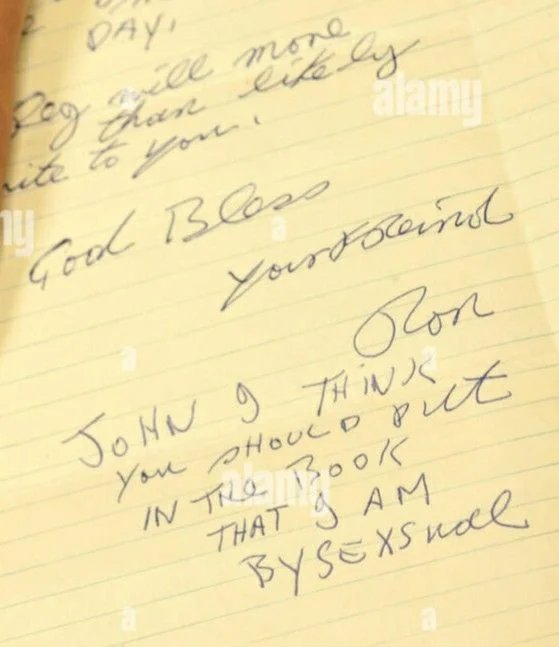 DAY,
Reg will more
than likely
ite to you.
God Bless
your freind
Ron
JOHN I THINK
You SHOULD PUt
IN THe BOOK
THAT I AM
BYSEXSUAL
alamy
alamy
a
a
a
a
a